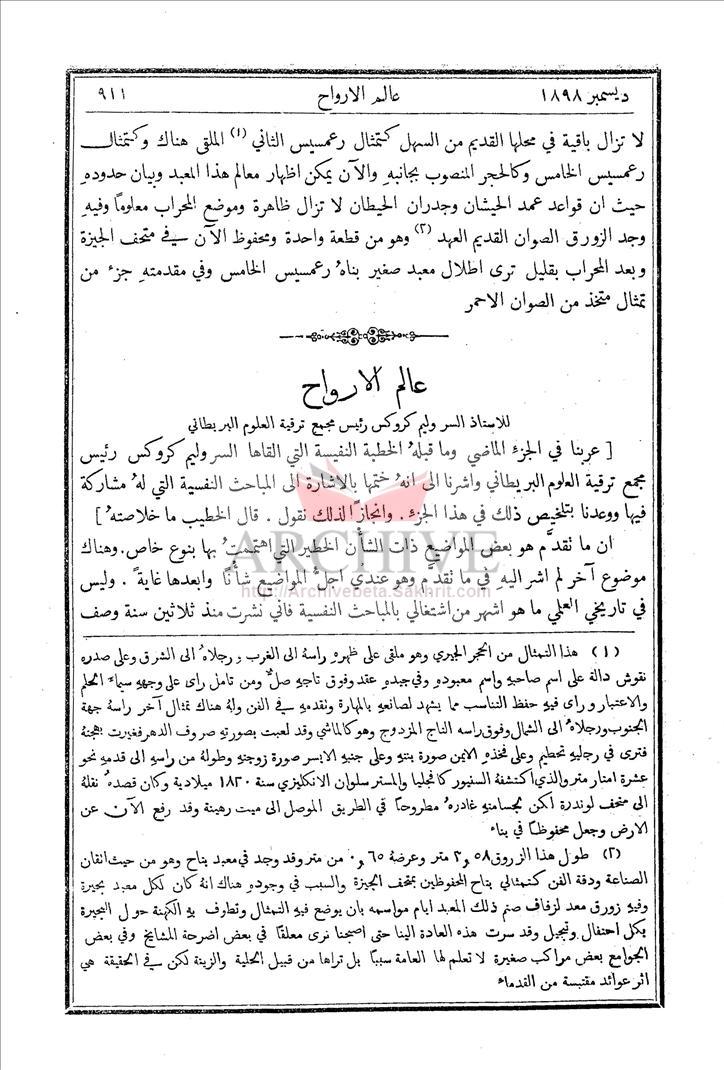 ديسمبر ١٨٩٨ عالم الارواح ٩١١
لا تزال باقية في محلها القديم من السهل كتمثال رعمسيس الثاني (١) الملقى هناك وكتمثال
رعمسيس الخامس وكالحجر المنصوب بجانبهِ والآن يمكن اظهار معالم هذا المعبد وبيان حدودهِ
حيث ان قواعد عمد الحيشان وجدران الحيطان لا تزال ظاهرة وموضع المحراب معلومًا وفيهِ
وجد الزورق الصوان القديم العهد (٢) وهو من قطعة واحدة ومحفوظ الآن في متحف الجيزة
وبعد المحراب بقليل ترى اطلال معبد صغير بناهُ رعمسيس الخامس وفي مقدمتهِ جزء من
تمثال متخذ من الصوان الاحمر
عالم الارواح
للاستاذ السر وليم كروكس رئيس مجمع ترقية العلوم البريطاني
[ عربنا في الجزء الماضي وما قبلهُ الخطبة النفيسة التي القاها السر وليم كروكس رئيس
مجمع ترقية العلوم البريطاني واشرنا الى انهُ ختمها بالاشارة الى المباحث النفسية التي لهُ مشاركة
فيها ووعدنا بتلخيص ذلك في هذا الجزء . وانجازًا لذلك نقول . قال الخطيب ما خلاصتهُ ]
ان ما نقدَّم هو بعض المواضيع ذات الشأن الخطير التي اهتممتُ بها بنوع خاص. وهناك
موضوع آخر لم اشر اليهِ في ما نقدَّم وهو عندي اجلُّ المواضيع شأنًا وابعدها غايةً . وليس
في تاريخي العلمي ما هو اشهر من اشتغالي بالمباحث النفسية فاني نشرت منذ ثلاثين سنة وصف
ARCHIVE
http://Archivebeta.Sakhrit.com
(١) هذا التمثال من الحجر الجيري وهو ملقى على ظهرهِ راسهُ الى الغرب ورجلاهُ الى الشرق وعلى صدره
نقوش دالة على اسم صاحبهِ واسم معبودهِ وفي جيدهِ عقد وفوق تاجهِ صلٌّ ومن تامل راى على وجههِ سيماء الحلم
والاعتبار وراى فيهِ حفظ التناسب مما يشهد لصانعهِ بالمهارة ونقدمهِ في الفن ولهُ هناك تمثال آخر راسهُ جهة
الجنوب ورجلاهُ الى الشمال وفوق راسهِ التاج المزدوج وهو كالماضي وقد لعبت بصورتهِ صروف الدهر فغيرت بهجته
فترى في رجليهِ تحطيم وعلى فخذهِ الايمن صورة بنتهِ وعلى جنبهِ الايسر صورة زوجتهِ وطولهُ من راسهِ الى قدمهِ نحو
عشرة امتار متر والذي اكتشفهُ السنيور كافجليا والمستر سلوان الانكليزي سنة ١٨٢٠ ميلادية وكان قصدهُ نقلهُ
الى متحف لوندرة لكن لجسامتهِ غادرهُ مطروحًا في الطريق الموصل الى ميت رهينة وقد رفع الآن عن
الارض وجعل محفوظًا في بناء
(٢) طول هذا الزورق ٢٫٥٨ متر وعرضهُ ٠٫٦٥ من متر وقد وجد في معبد بتاح وهو من حيث اتقان
الصناعة ودقة الفن كتمثالي بتاح المحفوظين بمتحف الجيزة والسبب في وجودهِ هناك انهُ كان لكل معبد بحيرة
وفيهِ زورق معد لزفاف صنم ذلك المعبد ايام مواسمهِ بان يوضع فيهِ التمثال وتطوف بهِ الكهنة حول البحيرة
بكل احتفال وتبجيل وقد سرت هذه العادة الينا حتى اصبحنا نرى معلقًا في بعض اضرحة المشايخ وفي بعض
الجوامع بعض مراكب صغيرة لا تعلم لها العامة سببًا بل تراها من قبيل الحلية والزينة لكن في الحقيقة هي
اثر عوائد مقتبسة من القدماء